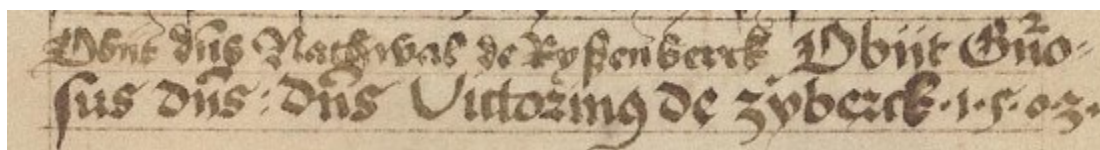 Obijt dn̄s Nachwal de Ryffenberck Obijt Gn̄o-
sus dn̄s : dn̄s Victorinꝯ de zyberck · 1 · 5 · 0 3 ·